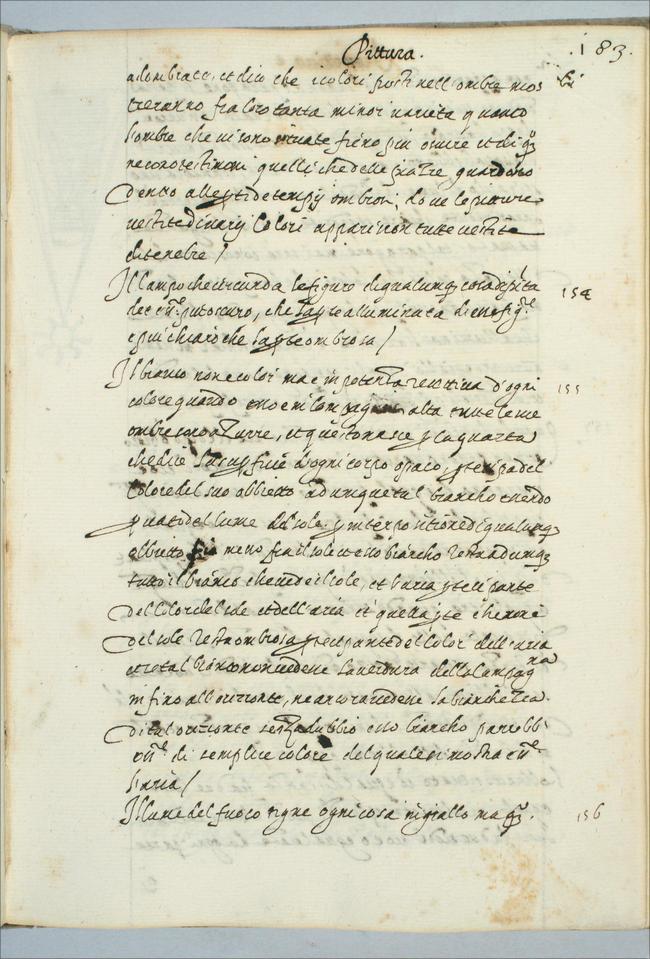 Pittura. .183.
adombrati, et dico che i colori posti nell ombre mos
treranno fra loro tanta minor varieta quanto
l'ombre che vi sono situate fieno più oscure et di qo
ne sono testimoni quelli che delle piazze guardano
dentro alle porti de tempij ombrosi, dove le pitture
vestite di varij Colori appariscon tutte vestite
di tenebre /
Il campo che circunda le figure di qualunq cosa dipinta
de' essere piu oscuro, che la parte alluminata di esse figure
e piu chiaro che la parte ombrosa / 154
Il bianco non e colore ma e in potenza recettiva d'ogni
colore quando esso e in Campagna alta tutte le sue 155
ombre sono azzurre, et questo nasce per la quarta
che dice la superfitie d'ogni corpo opaco, partecipa del
Colore del suo obbietto adunque tal biancho essendo
privato del lume del sole per interpositione di qualunq
obbietto fra messo fra il sole et esso biancho resta adunq
tutto il bianco che vede il sole, et l'aria partecipante
del Color del sole et dell'aria et quella parte che non è
del sole resta ombrosa partecipante del Color dell'aria
et se tal bianco non vedesse la verdura della Campagna
in sino all'orizzonte, ne ancora vedesse la bianchezza
di tal orizonte senza dubbio esso biancho parebb
essere di semplice colore del quale si mostra essere
l'aria /
Il lume del fuoco tigne ogni cosa in giallo ma qo. 156